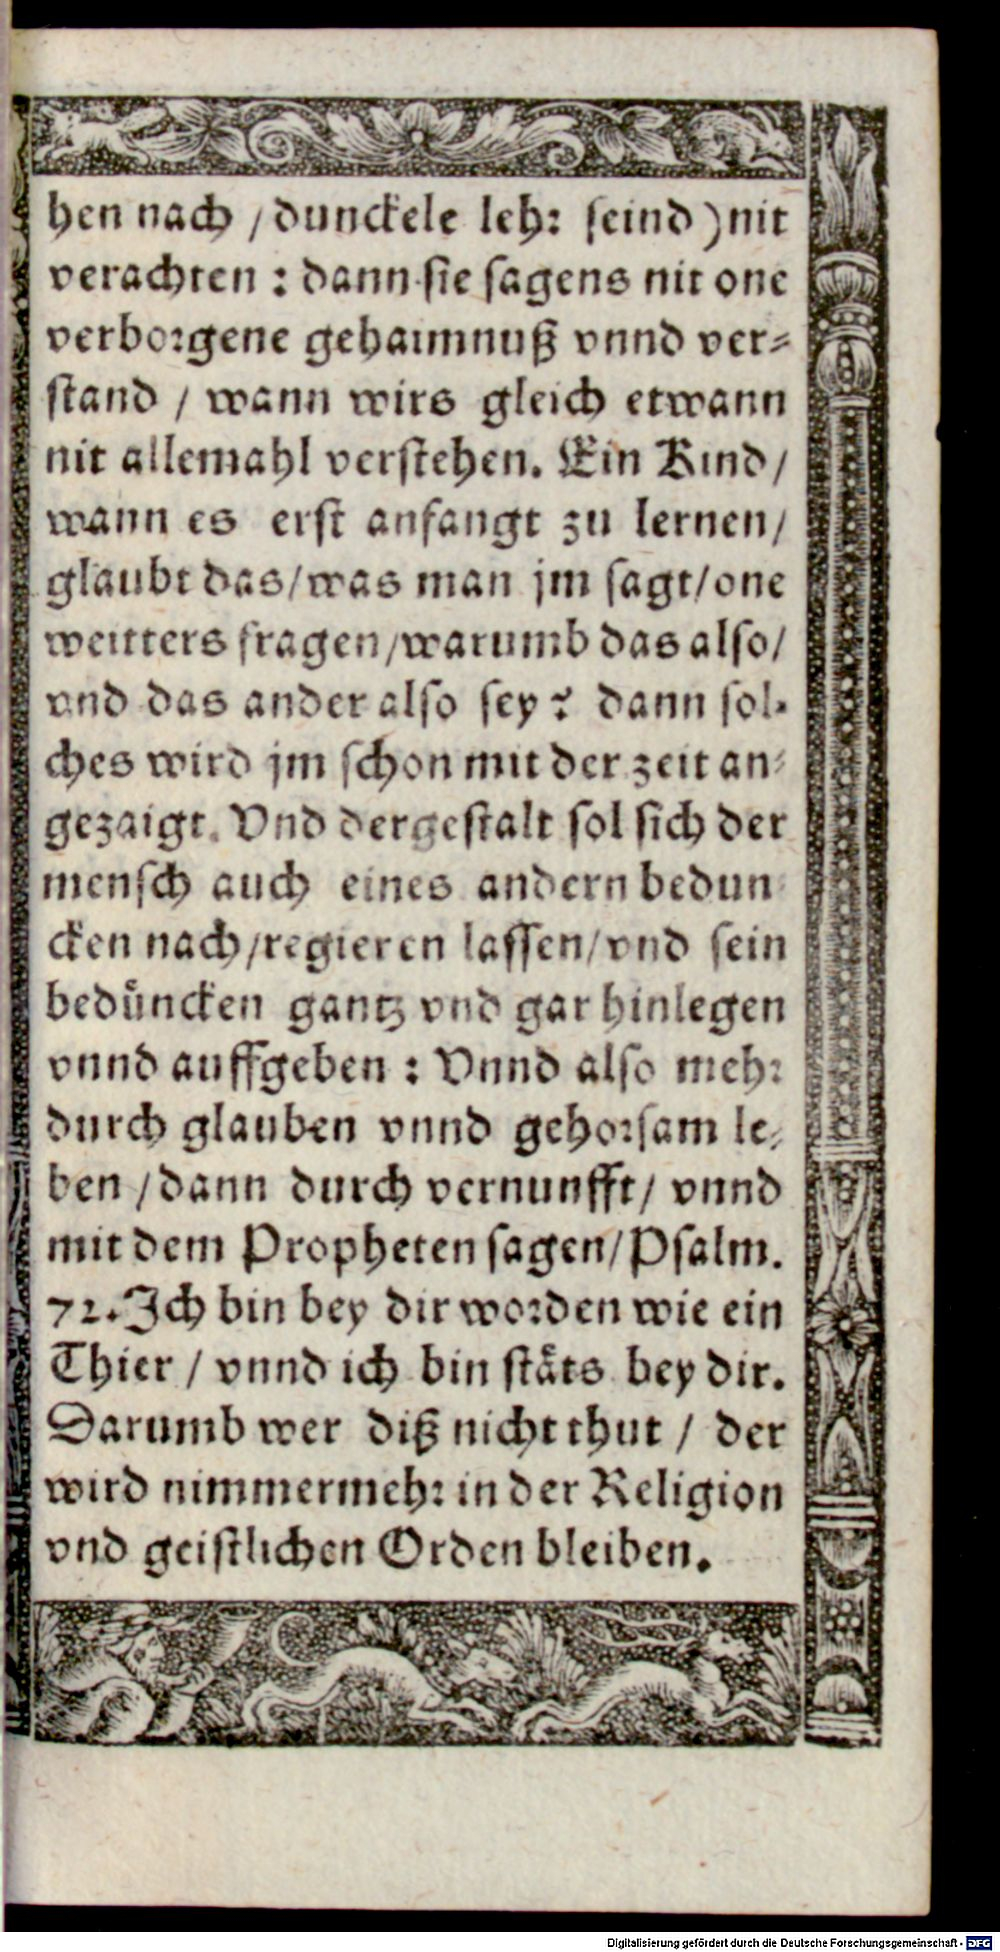 hen nach / dunckele lehr seind) nit
verachten : dann sie sagens nit one
verborgene gehaimnuß vnnd ver⸗
stand / wann wirs gleich etwann
nit allemahl verstehen. Ein Kind /
wann es erst anfangt zu lernen /
glaubt das / was man jm sagt / one
weitters fragen / warumb das also /
vnd das ander also sey? dann sol⸗
ches wird jm schon mit der zeit an⸗
gezaigt. Vnd dergestalt sol sich der
mensch auch eines andern bedun⸗
cken nach / regieren lassen / vnd sein
bedüncken gantz vnd gar hinlegen
vnnd auffgeben : Vnnd also mehr
durch glauben vnnd gehorsam le⸗
ben / dann durch vernunfft / vnnd
mit dem Propheten sagen / Psalm.
72. Ich bin bey dir worden wie ein
Thier / vnnd ich bin stäts bey dir.
Darumb wer diß nicht thut / der
wird nimmermehr in der Religion
vnd geistlichen Orden bleiben.
Digitalisierung gefördert durch die Deutsche Forschungsgemeinschaft - DFG